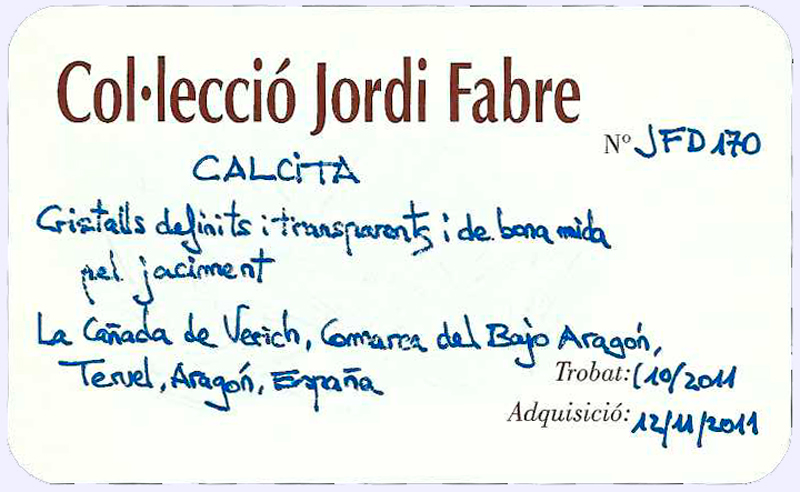 Col·lecció Jordi Fabre
Nº JFD170
CALCITA
Cristalls definits i transparents i de bona mida
pel jaciment
La Cañada de Verich, Comarca del Bajo Aragón,
Teruel, Aragón, España
Trobat: (10/2011
Adquisició: 12/11/2011